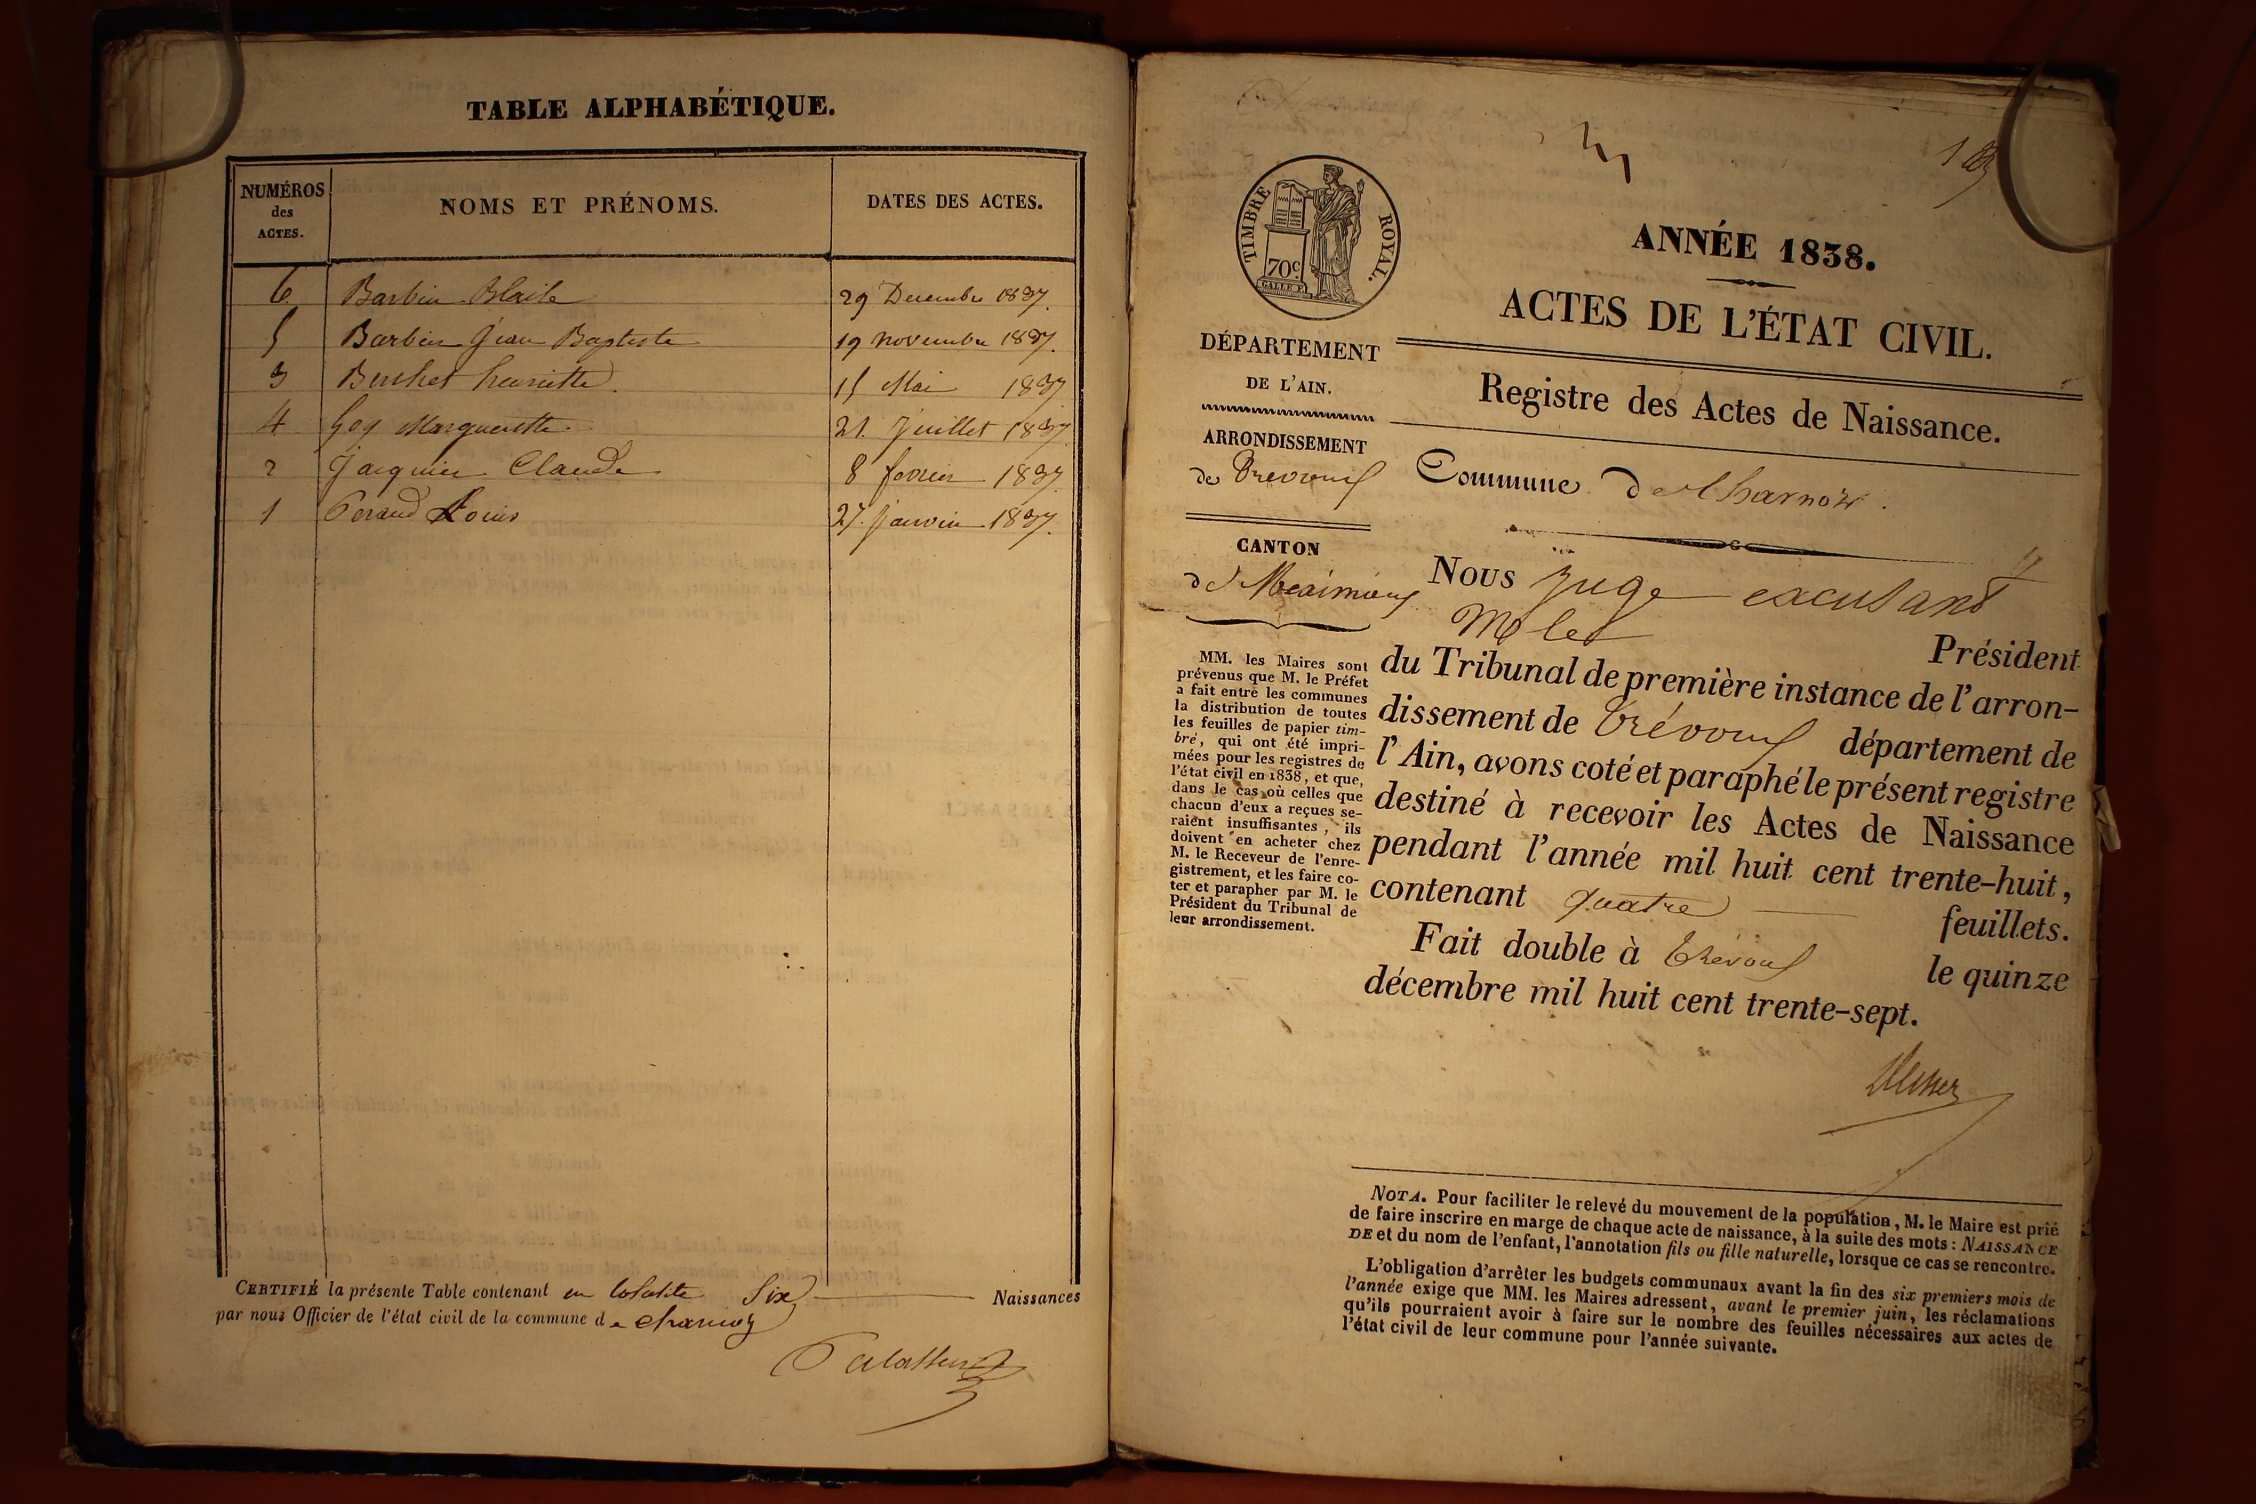 TABLE ALPHABÉTIQUE.
NUMÉROS des ACTES. NOMS ET PRÉNOMS. DATES DES ACTES.
6 Barbin Blaise 29 Decembre 1837.
5 Barbin Jean Baptiste 19 Novembre 1837.
3 Berchet henriette 15 Mai 1837
4 Goy Margueritte 21. Juillet 1837
2 Jacquier Claude 8 fevrier 1837
1 Peraud Louis 27. Janvier 1837.
CERTIFIÉ la présente Table contenant en totalité Six Naissances
par nous Officier de l'état civil de la commune de charnoz
1
TIMBRE ROYAL.
70c.
ANNÉE 1838.
ACTES DE L'ÉTAT CIVIL.
Registre des Actes de Naissance.
DÉPARTEMENT
DE L'AIN.
ARRONDISSEMENT
de Trévoux
Commune de Charnoz.
CANTON
de Meximieux
MM. les Maires sont
prévenus que M. le Préfet
a fait entre les communes
la distribution de toutes
les feuilles de papier tim-
bré, qui ont été impri-
mées pour les registres de
l'état civil en 1838, et que,
dans le cas où celles que
chacun d'eux a reçues se-
raient insuffisantes, ils
doivent en acheter chez
M. le Receveur de l'enre-
gistrement, et les faire co-
ter et parapher par M. le
Président du Tribunal de
leur arrondissement.
Nous Juge excusant
M le Président
du Tribunal de première instance de l'arron-
dissement de Trévoux département de
l'Ain, avons coté et paraphé le présent registre
destiné à recevoir les Actes de Naissance
pendant l'année mil huit cent trente-huit,
contenant quatre feuillets.
Fait double à Trévoux le quinze
décembre mil huit cent trente-sept.
NOTA. Pour faciliter le relevé du mouvement de la population, M. le Maire est prié
de faire inscrire en marge de chaque acte de naissance, à la suite des mots : NAISSANCE
DE et du nom de l'enfant, l'annotation fils ou fille naturelle, lorsque ce cas se rencontre.
L'obligation d'arrêter les budgets communaux avant la fin des six premiers mois de
l'année exige que MM. les Maires adressent, avant le premier juin, les réclamations
qu'ils pourraient avoir à faire sur le nombre des feuilles nécessaires aux actes de
l'état civil de leur commune pour l'année suivante.